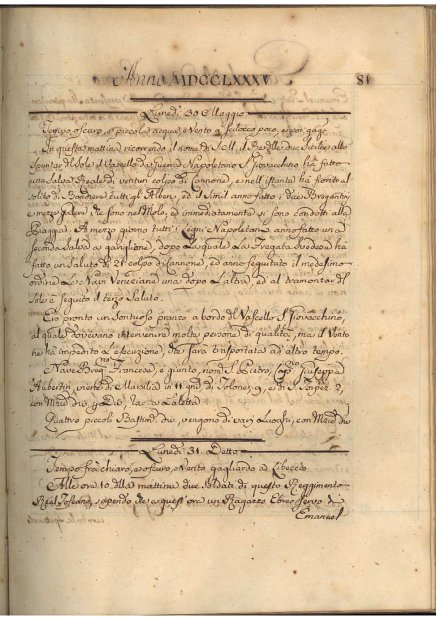 Anno MDCCLXXXV 81
Lunedì 30 Maggio
Tempo oscuro, e piccola acqua, e Vento a Scilocco poco, e poi gagl:
In questa mattina ricorrendo il nome di S.M. il Re delle due Sicilie allo
spuntar del Sole il Vascello da Guerra Napoletano S. Giovacchino ha fatto
una Salva Reale di ventun colpo di Cannone, e nell'istante ha fiorito al
solito di Bandiere tutti gli Alberi, ed il simil anno fatto i due Brigantini,
e mezze Galere che sono nel Molo, ed immediatamente si sono condotti alla
Spiaggia. A mezzo giorno tutti i Legni Napoletani anno fatto una
seconda Salva a
dopo la quale la Fregata ha
fatto un Saluto di 21 colpo di Cannone, ed anno seguitato il medesimo
ordine Le Navi Veneziane una dopo l'altra, ed al tramontar del
Sole è seguito il terzo Saluto.
Era pronto un sontuoso pranzo a bordo del Vascello S. Giovacchino,
al quale dovevano intervenire molte persone di qualità, ma il Vento
ne ha impedito l'esecuzione, che sarà trasportata ad altro tempo.
Nave Brig.no Francese, è giunto, nom. S. Pietro, Cap.no Giuseppe
Aubertin, viene di Marsilia in 11 gni di Tolone, 9, e di S. Torpè 7,
con Merci div.
Quattro piccoli Bastim. div. vengono di varj Luoghi, con Merci div.
Lunedì 31 Detto
Tempo frà chiaro, e oscuro, e Vento gagliardo a Libeccio
Alle ore 10 della mattina due Soldati di questo Reggimento
Real Toscano, sapendo che a quest'ore un Ragazzo Ebreo servo di
Emanuel